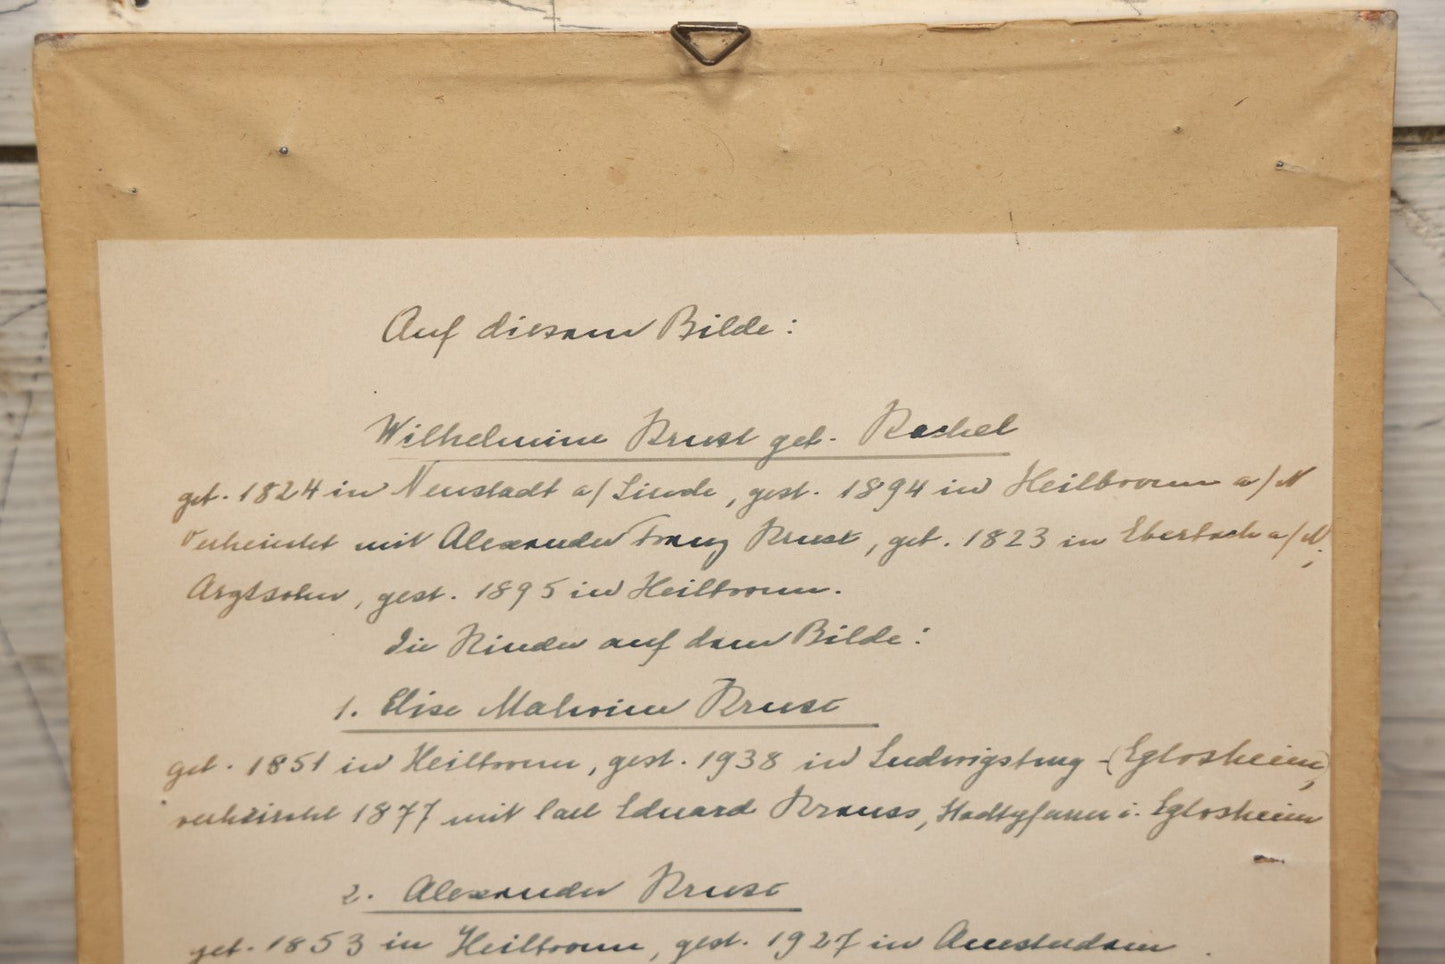 Auf diesem Bilde:
Wilhelmine Krust geb. Raschel
geb. 1824 in Neustadt a/Linde, gest. 1894 in Heilbronn a/N
Verheiratet mit Alexander Franz Krust, geb. 1823 in Eberbach a/N.
Arztsohn, gest. 1895 in Heilbronn.
Die Kinder auf dem Bilde:
1. Elise Malwine Krust
geb. 1851 in Heilbronn, gest. 1938 in Ludwigsburg - (Eglosheim),
verheiratet 1877 mit Carl Eduard Krauss, Stadtpfarrer i. Eglosheim
2. Alexander Krust
geb. 1853 in Heilbronn, gest. 1927 in Amsterdam.